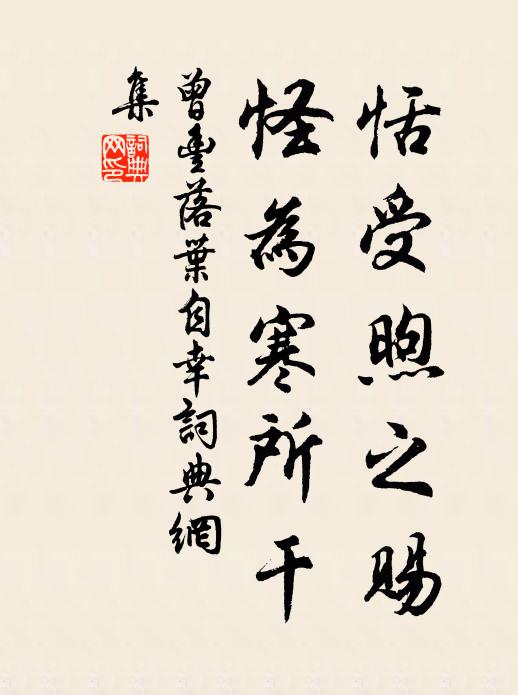 恬受煦之賜
怪為寒所干
曾豐落葉自幸詞典網
集
詞典
網印